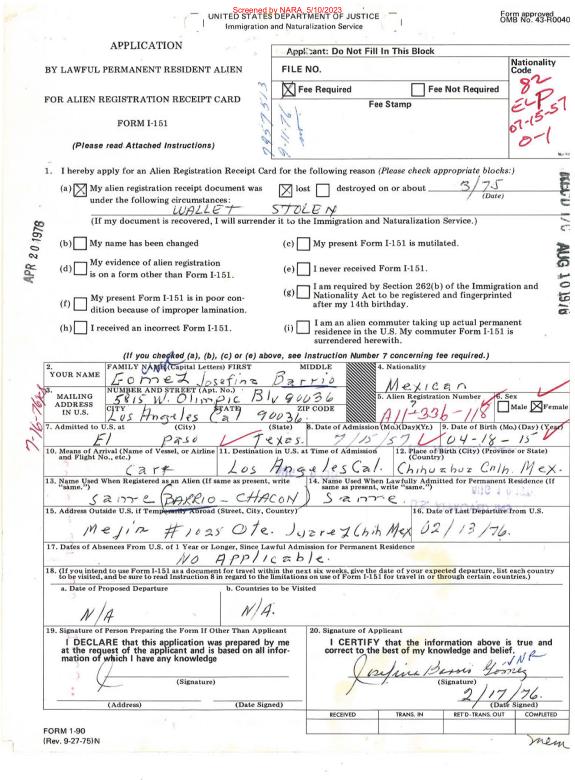 Screened by NARA, 5/10/2023
UNITED STATES DEPARTMENT OF JUSTICE
Immigration and Naturalization Service
Form approved
OMB No. 43-R0040
APPLICATION
BY LAWFUL PERMANENT RESIDENT ALIEN
FOR ALIEN REGISTRATION RECEIPT CARD
FORM I-151
(Please read Attached Instructions)
Applicant: Do Not Fill In This Block
FILE NO.
Fee Required
Fee Not Required
Fee Stamp
Nationality
Code
82
ELP
07-15-57
0-1
1. I hereby apply for an Alien Registration Receipt Card for the following reason (Please check appropriate blocks:)
(a) My alien registration receipt document was lost destroyed on or about 3/75
under the following circumstances: (Date)
WALLET STOLEN
(If my document is recovered, I will surrender it to the Immigration and Naturalization Service.)
(b) My name has been changed
(c) My present Form I-151 is mutilated.
(d) My evidence of alien registration
is on a form other than Form I-151.
(e) I never received Form I-151.
(f) My present Form I-151 is in poor con-
dition because of improper lamination.
(g) I am required by Section 262(b) of the Immigration and
Nationality Act to be registered and fingerprinted
after my 14th birthday.
(h) I received an incorrect Form I-151.
(i) I am an alien commuter taking up actual permanent
residence in the U.S. My commuter Form I-151 is
surrendered herewith.
APR 20 1976
AUG 10 1976
(If you checked (a), (b), (c) or (e) above, see Instruction Number 7 concerning fee required.)
2. YOUR NAME
FAMILY NAME (Capital Letters) FIRST MIDDLE
Gomez Josefina Barrio
4. Nationality
Mexican
3. MAILING ADDRESS IN U.S.
NUMBER AND STREET (Apt. No.)
5815 W. Olimpic Blv 90036
CITY STATE ZIP CODE
Los Angeles Cal 90036.
5. Alien Registration Number
A11-336-118
6. Sex
Male Female
7. Admitted to U.S. at (City) (State)
El Paso Texas.
8. Date of Admission (Mo.)(Day)(Yr.)
7/15/57
9. Date of Birth (Mo.) (Day) (Year)
04-18-15
10. Means of Arrival (Name of Vessel, or Airline
and Flight No., etc.)
Car
11. Destination in U.S. at Time of Admission
Los Angeles Cal.
12. Place of Birth (City) (Province or State)
(Country)
Chihuahua Chih. Mex.
13. Name Used When Registered as an Alien (If same as present, write
"same.")
same (BARRIO-CHACON)
14. Name Used When Lawfully Admitted for Permanent Residence (If
same as present, write "same.")
Same.
15. Address Outside U.S. if Temporarily Abroad (Street, City, Country)
Mejia #1025 Ote. Juarez Chih Mex
16. Date of Last Departure from U.S.
02/13/76.
17. Dates of Absences From U.S. of 1 Year or Longer, Since Lawful Admission for Permanent Residence
NO Applicable.
18. (If you intend to use Form I-151 as a document for travel within the next six weeks, give the date of your expected departure, list each country
to be visited, and be sure to read Instruction 8 in regard to the limitations on use of Form I-151 for travel in or through certain countries.)
a. Date of Proposed Departure
N/A
b. Countries to be Visited
N/A.
19. Signature of Person Preparing the Form If Other Than Applicant
I DECLARE that this application was prepared by me
at the request of the applicant and is based on all infor-
mation of which I have any knowledge
(Signature)
(Address) (Date Signed)
20. Signature of Applicant
I CERTIFY that the information above is true and
correct to the best of my knowledge and belief.
Josefina Barrio Gómez
(Signature)
2/17/76.
(Date Signed)
RECEIVED TRANS. IN RET'D-TRANS. OUT COMPLETED
FORM I-90
(Rev. 9-27-75)N